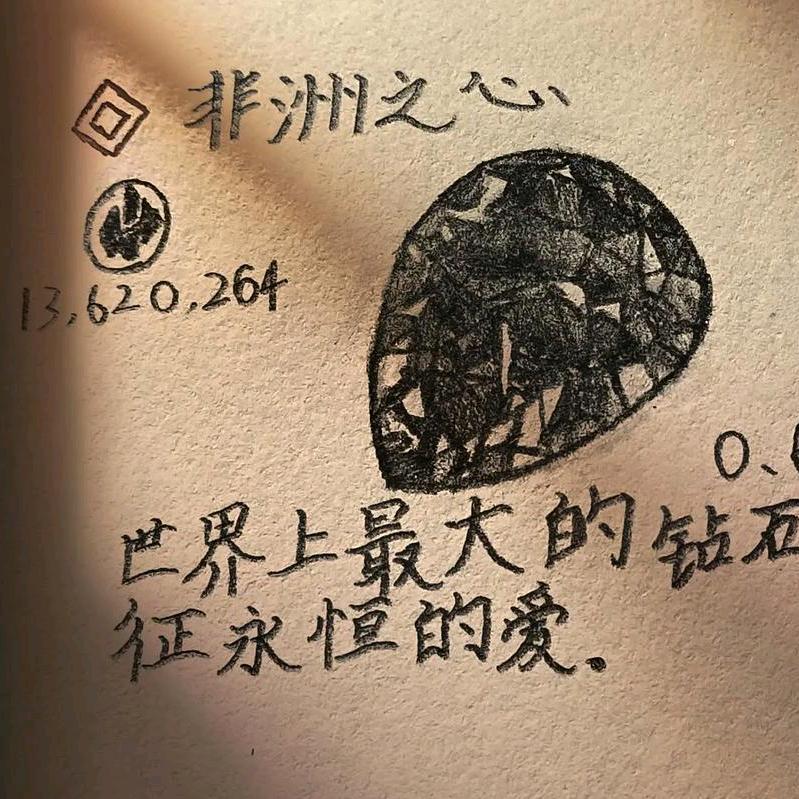 非洲之心
13,620,264
0.
世界上最大的钻石
征永恒的爱.